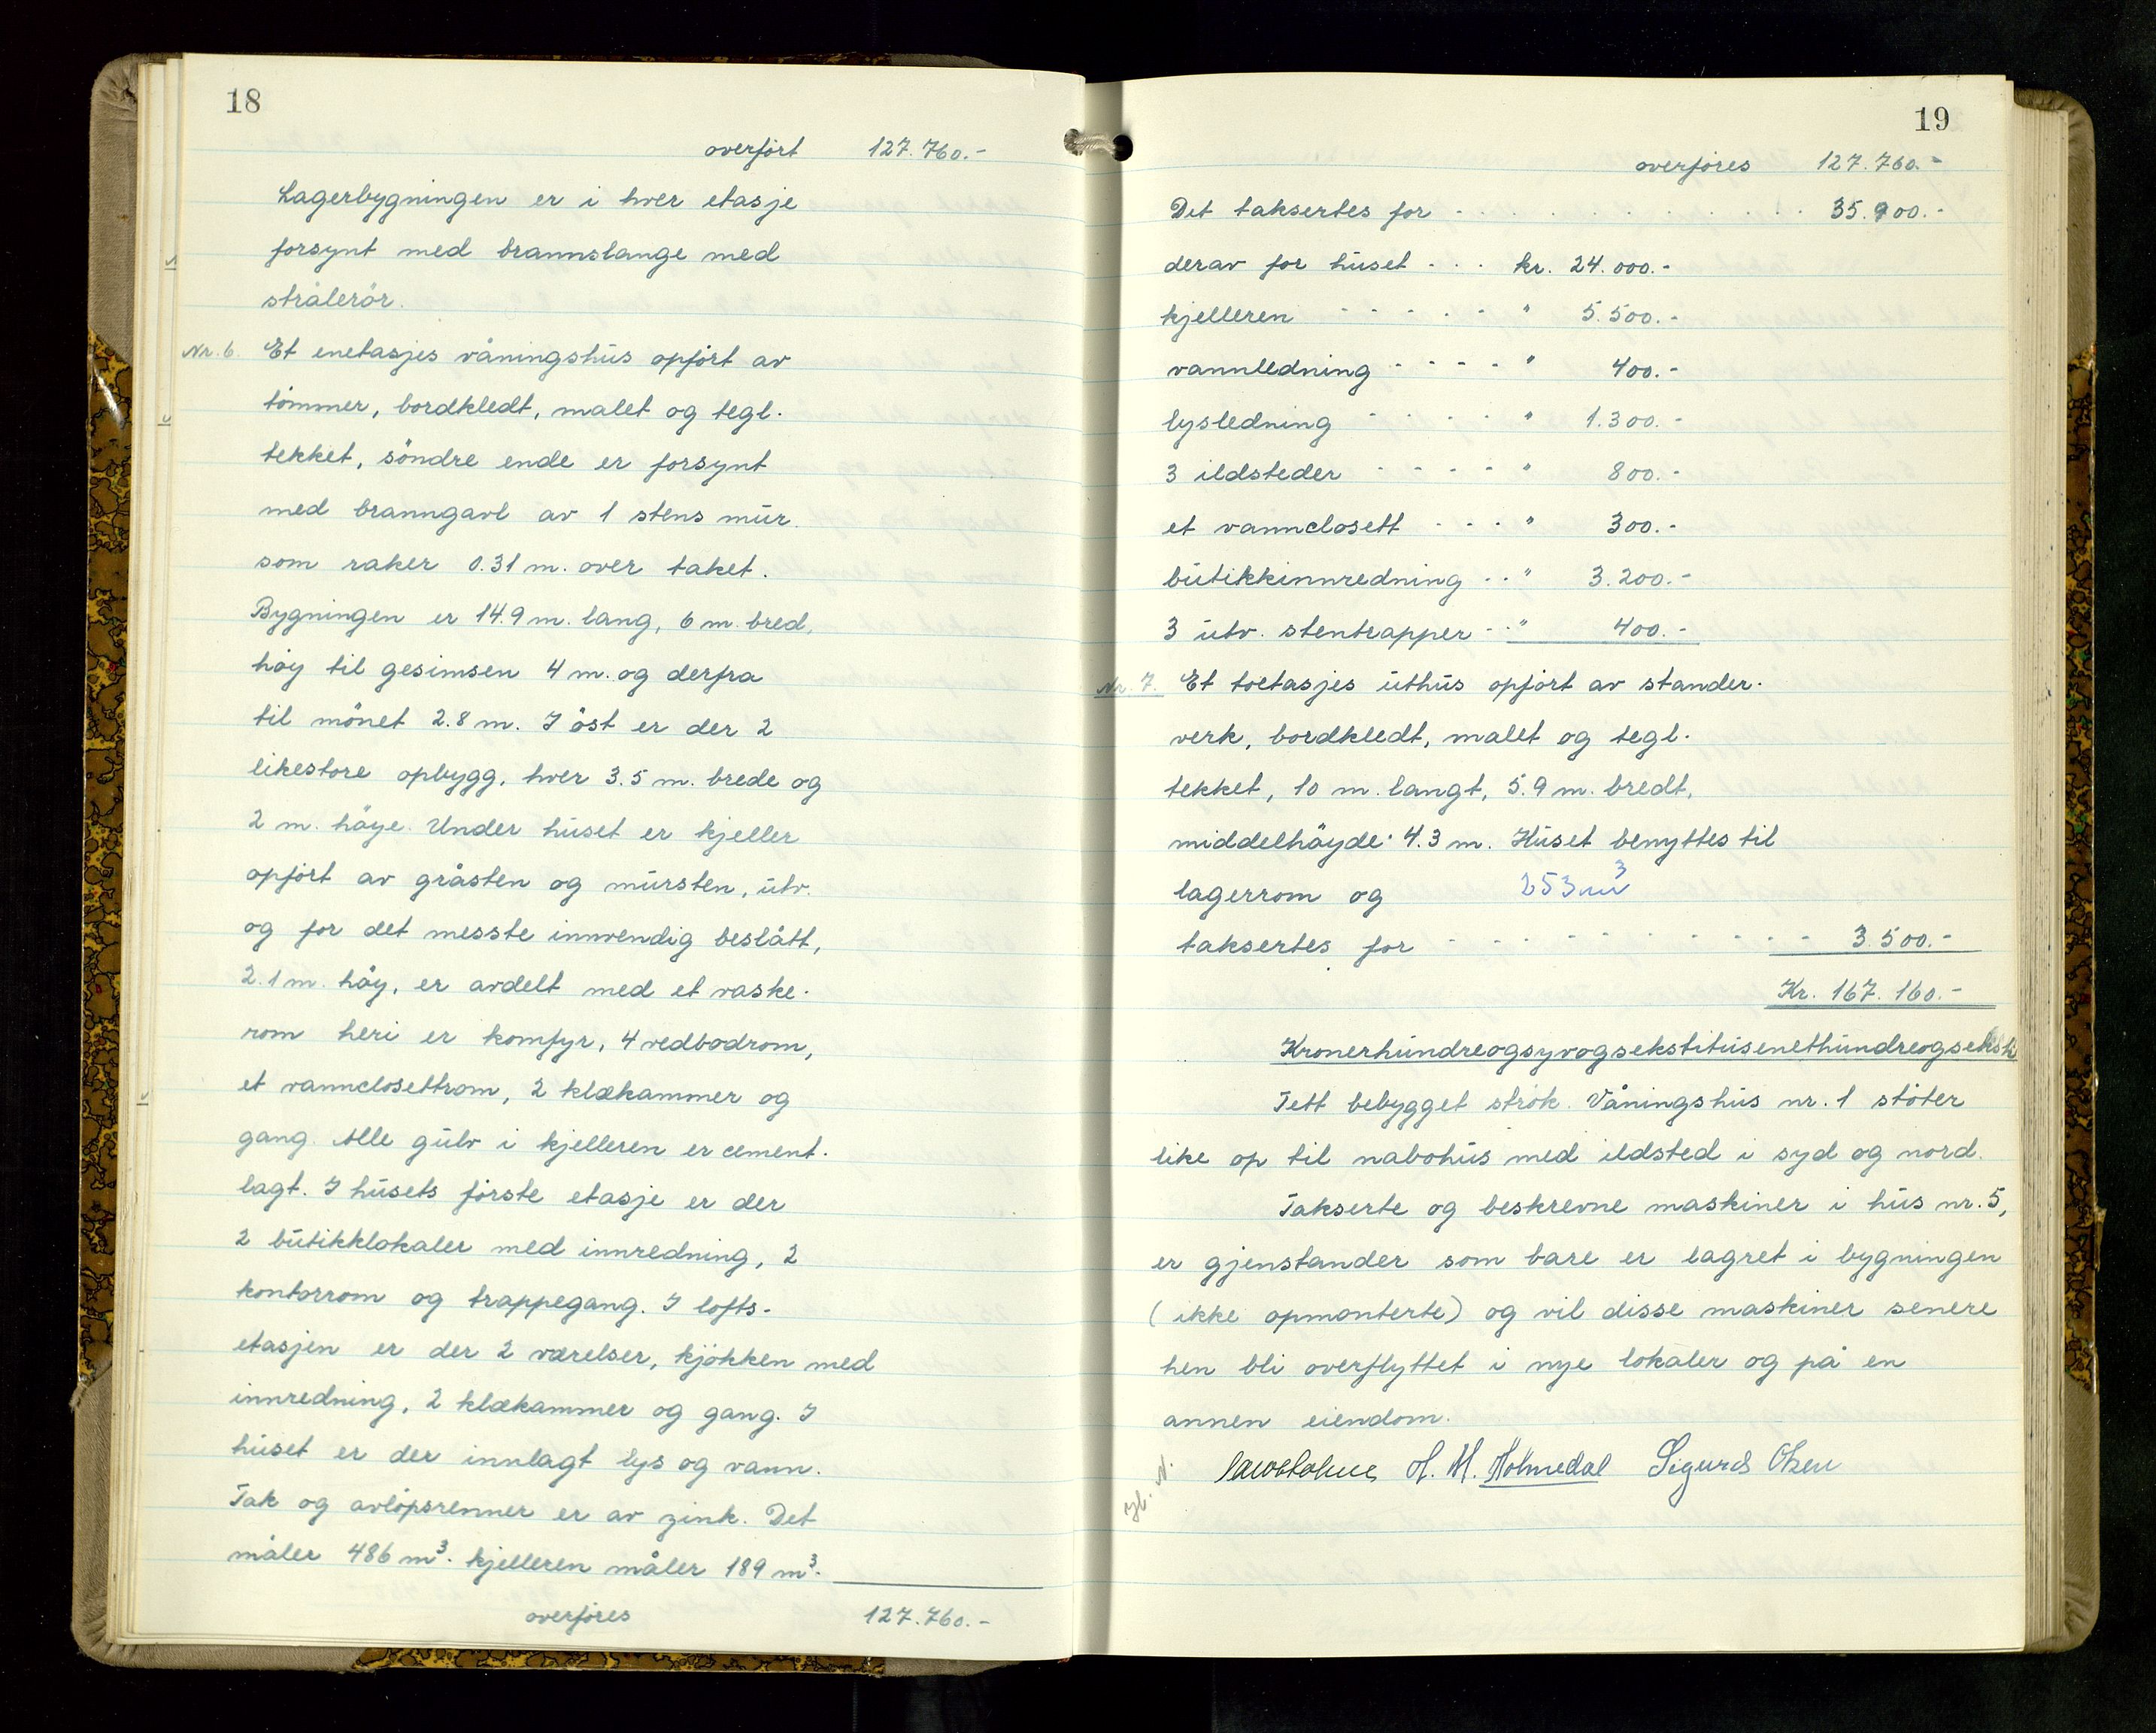 18
overført 127.760.-
Lagerbygningen er i hver etasje
forsynt med brannslange med
strålerör.
Nr. 6. Et enetasjes våningshus opfört av
tömmer, bordkledt, malet og tegl-
tekket, söndre ende er forsynt
med branngavl av 1 stens mur
som raker 0.31 m. over taket.
Bygningen er 14.9 m. lang, 6 m. bred,
höy til gesimsen 4 m. og derfra
til mönet 2.8 m. I öst er der 2
likestore opbygg, hver 3.5 m. brede og
2 m. höye. Under huset er kjeller
opfört av gråsten og mursten, utv.
og for det messte innvendig beslått,
2.1 m. höy, er avdelt med et vaske-
rom heri er komfyr, 4 vedbodrom,
et vannclosettrom, 2 klækammer og
gang. Alle gulv i kjelleren er cement-
lagt. I husets förste etasje er der
2 butikklokaler med innredning, 2
kontorrom og trappegang. I lofts-
etasjen er der 2 værelser, kjökken med
innredning, 2 klækammer og gang. I
huset er der innlagt lys og vann.
Tak og avlöpsrenner er av zink. Det
måler 486 m³. kjelleren måler 189 m³.
overföres 127.760.-
19
overföres 127.760.-
Det taksertes for - . . . . . . . . . . . . . 35.900.-
derav for huset - . . kr. 24.000.-
kjelleren - - - - - " 5.500.-
vannledning - - - - " 400.-
lysledning - - - - - " 1.300.-
3 ildsteder - - - - - " 800.-
et vannclosett - - - " 300.-
butikkinnredning - - " 3.200.-
3 utv. stentrapper - - " 400.-
Nr. 7. Et toetasjes uthus opfört av stander-
verk, bordkledt, malet og tegl-
tekket, 10 m. langt, 5.9 m. bredt,
middelhöyde 4.3 m. Huset benyttes til
lagerrom og 253 m³
taksertes for - - - - - - - - - - 3.500.-
Kr. 167.160.-
Kronerhundreogsyvogsekstitusenethundreogseksti
Tett bebygget strök. Våningshus nr. 1 stöter
like op til nabohus med ildsted i syd og nord.
Takserte og beskrevne maskiner i hus nr. 5,
er gjenstander som bare er lagret i bygningen
(ikke opmonterte) og vil disse maskiner senere
hen bli overflyttet i nye lokaler og på en
annen eiendom.
H. M. Holmedal Sigurd Olsen